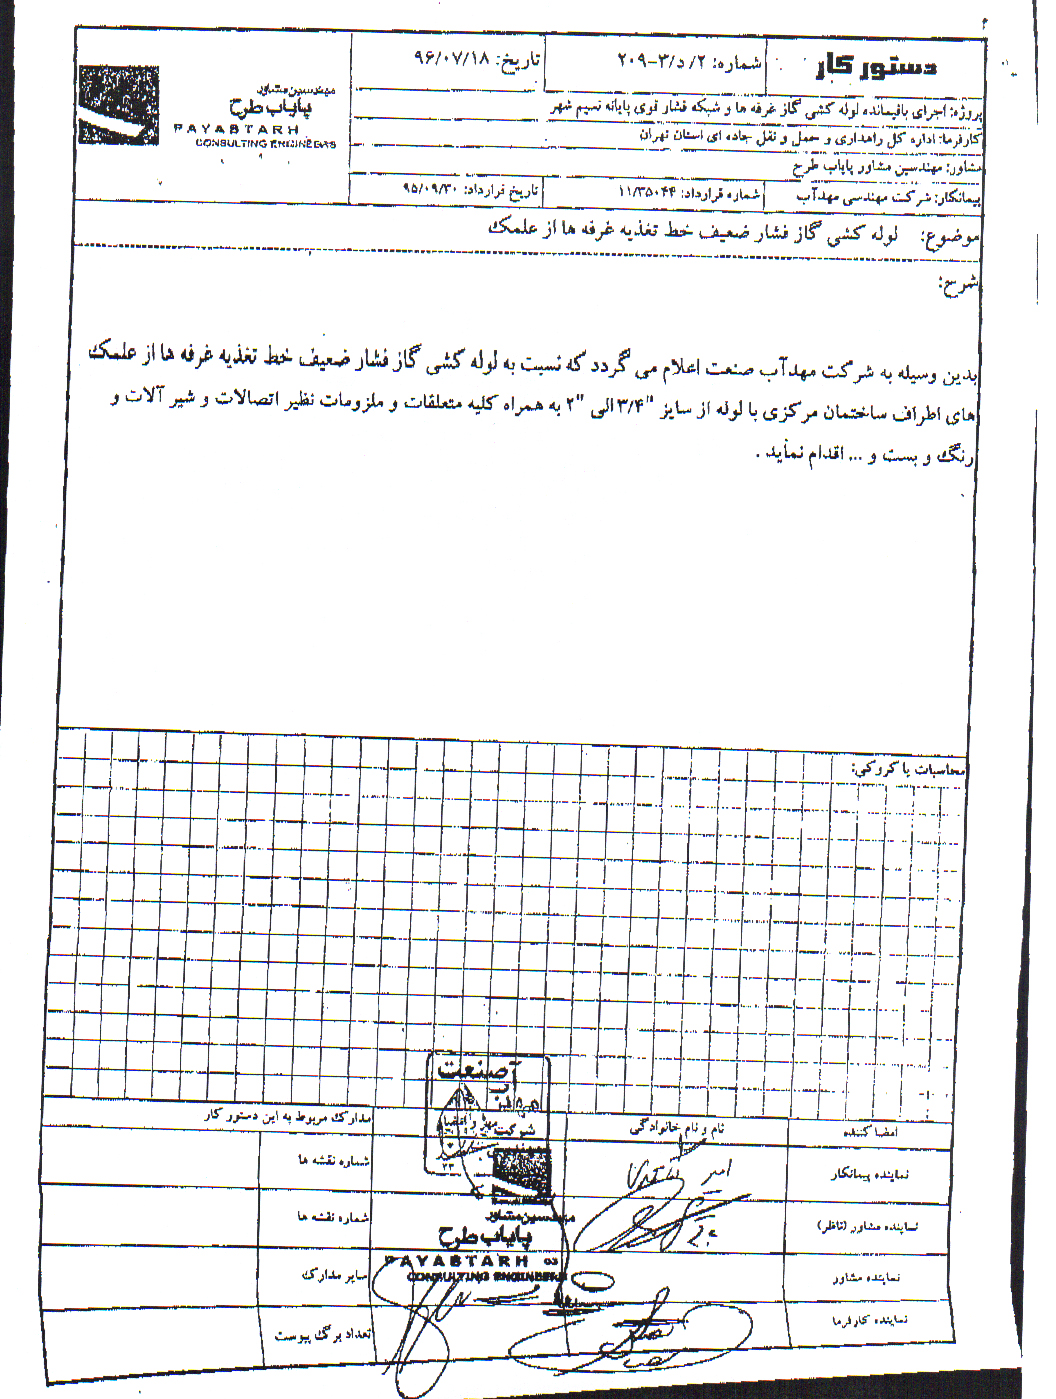 دستور کار
شماره: ۲/د/۳-۲۰۹
تاریخ: ۹۶/۰۷/۱۸
پروژه: اجرای باقیمانده لوله کشی گاز غرفه ها و شبکه فشار قوی پایانه نسیم شهر
کارفرما: اداره کل راهداری و حمل و نقل جاده ای استان تهران
مشاور: مهندسین مشاور پایاب طرح
پیمانکار: شرکت مهندسی مهدآب
شماره قرارداد: ۱۱/۳۵۰۴۴
تاریخ قرارداد: ۹۵/۰۹/۳۰
مهندسین مشاور
پایاب طرح
PAYABTARH
CONSULTING ENGINEERS
موضوع: لوله کشی گاز فشار ضعیف خط تغذیه غرفه ها از علمک
شرح:
بدین وسیله به شرکت مهدآب صنعت اعلام می گردد که نسبت به لوله کشی گاز فشار ضعیف خط تغذیه غرفه ها از علمک
های اطراف ساختمان مرکزی با لوله از سایز "۳/۴ الی "۲ به همراه کلیه متعلقات و ملزومات نظیر اتصالات و شیر آلات و
رنگ و بست و ... اقدام نماید .
محاسبات یا کروکی:
امضا کننده
نام و نام خانوادگی
مدارک مربوط به این دستور کار
نماینده پیمانکار
امیر
شماره نقشه ها
نماینده مشاور (ناظر)
شماره نقشه ها
نماینده مشاور
سایر مدارک
نماینده کارفرما
تعداد برگ پیوست
آب صنعت
شرکت
مهندسین مشاور
پایاب طرح
PAYABTARH
CONSULTING ENGINEERS